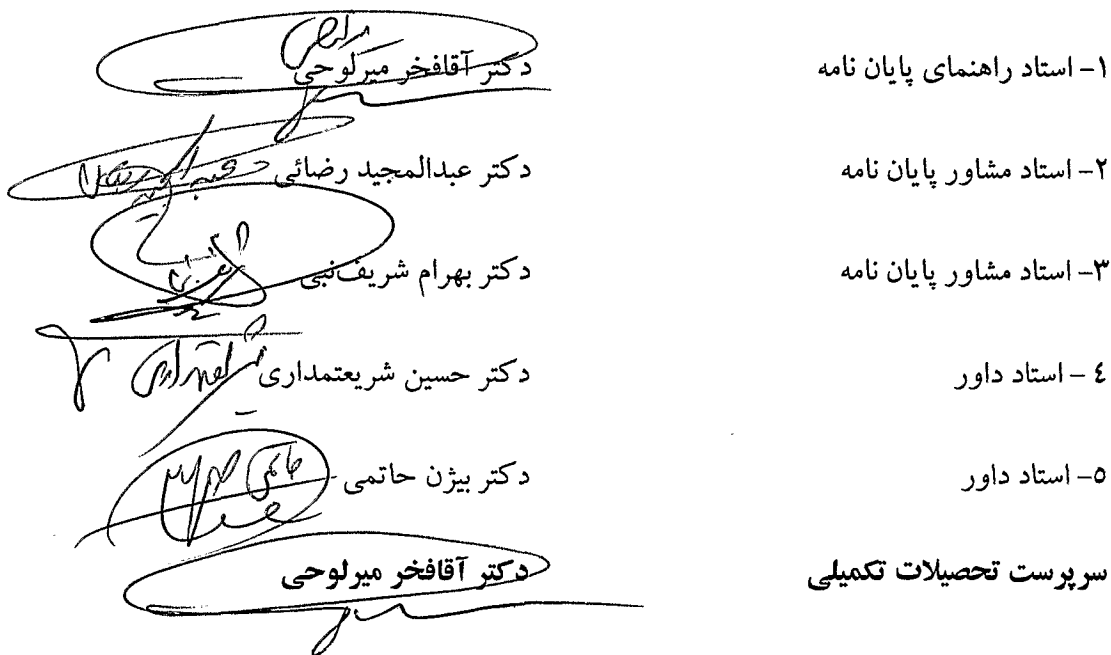 ۱- استاد راهنمای پایان نامه دکتر آقافخر میرلوحی
۲- استاد مشاور پایان نامه دکتر عبدالمجید رضائی
۳- استاد مشاور پایان نامه دکتر بهرام شریف‌نبی
٤ - استاد داور دکتر حسین شریعتمداری
٥- استاد داور دکتر بیژن حاتمی
سرپرست تحصیلات تکمیلی دکتر آقافخر میرلوحی